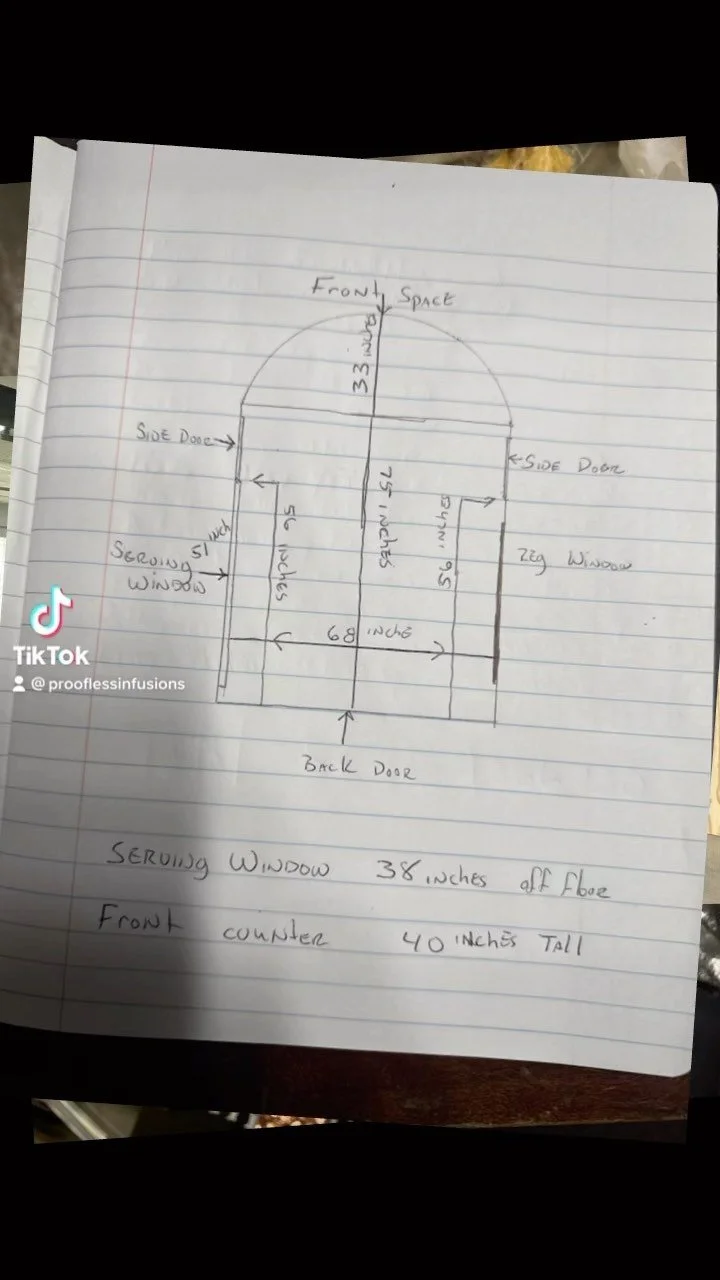 Front Space
33 inches
Side Door
Side Door
75 inches
56 inches
56 inches
51 inch
Serving
Window
Reg Window
68 inche
TikTok
@prooflessinfusions
Back Door
Serving Window 38 inches off floor
Front counter 40 inches Tall